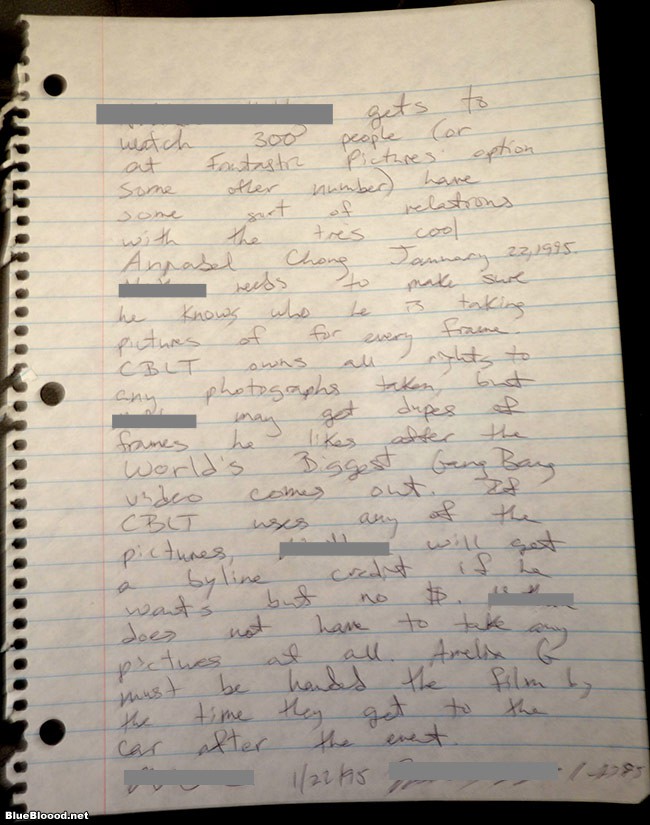 gets to
watch 300 people (or
at Fantastic Pictures' option
some other number) have
some sort of relations
with the très cool
Annabel Chong January 22, 1995.
needs to make sure
he knows who he is taking
pictures of for every frame.
CBLT owns all rights to
any photographs taken, but
may get dupes of
frames he likes after the
World's Biggest Gang Bang
video comes out. If
CBLT uses any of the
pictures, will get
a byline credit if he
wants but no $.
does not have to take any
pictures at all. Amelia G
must be handed the film by
the time they get to the
car after the event.
1/22/95
BlueBloood.net